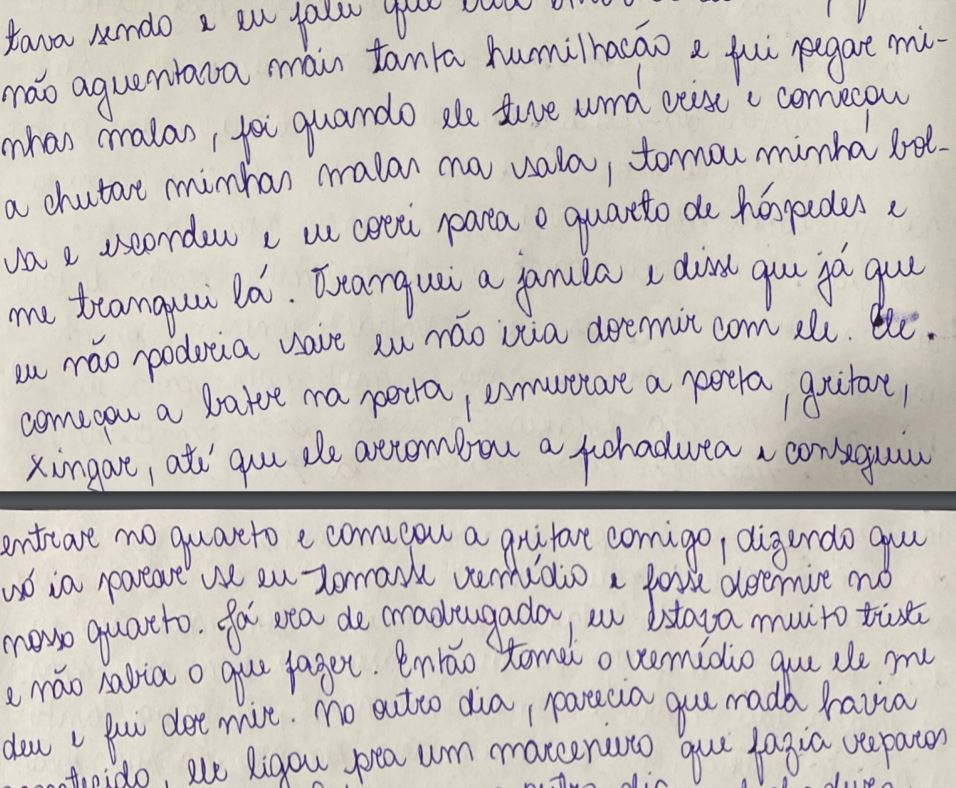 tava sendo e eu falei que
não aguentava mais tanta humilhação e fui pegar mi-
nhas malas, foi quando ele teve uma crise e começou
a chutar minhas malas na sala, tomou minha bol-
sa e escondeu e eu corri para o quarto de hóspedes e
me tranquei lá. Tranquei a janela e disse que já que
eu não poderia sair eu não iria dormir com ele. Ele.
começou a bater na porta, esmurrar a porta, gritar,
xingar, até que ele arrombou a fechadura e conseguiu
entrar no quarto e começou a gritar comigo, dizendo que
só ia parar se eu tomasse remédio e fosse dormir no
nosso quarto. Já era de madrugada, eu estava muito triste
e não sabia o que fazer. Então tomei o remédio que ele me
deu e fui dormir. No outro dia, parecia que nada havia
ele ligou pra um marceneiro que fazia reparos